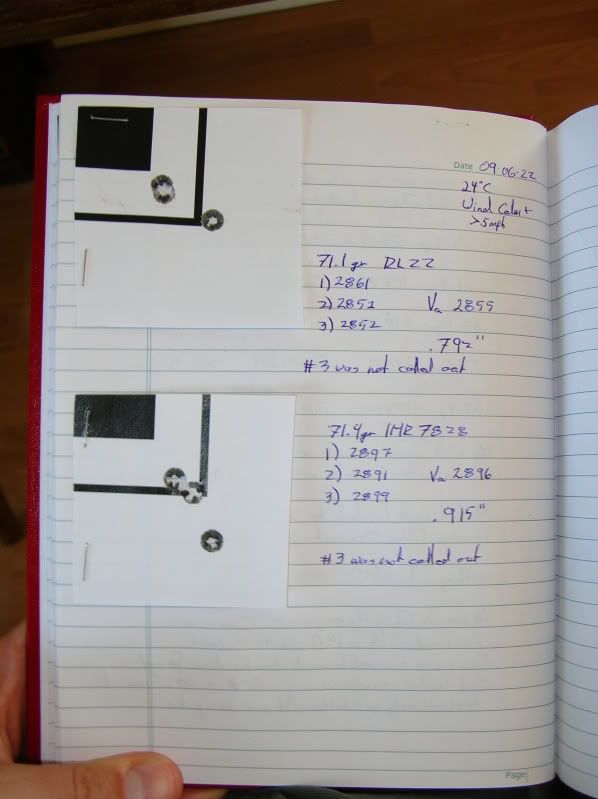 Date 09-06-22
24°C
Wind Calm +
>5mph
71.1gr RL22
1) 2861
2) 2851 Va 2855
3) 2852
.792"
#3 was not called out
71.4gr IMR 7828
1) 2897
2) 2891 Va 2896
3) 2899
.915"
#3 was not called out
Page